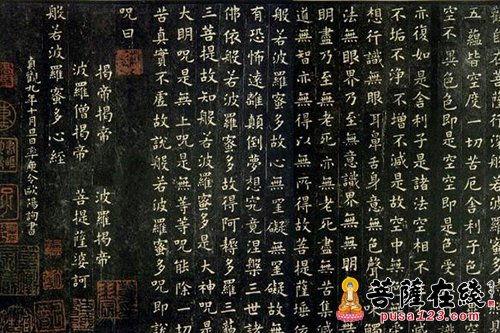 五蘊皆空度一切苦厄舍利子色
空空不異色色即是空空即是色受
亦復如是舍利子是諸法空相不
不垢不淨不增不減是故空中無
想行識無眼耳鼻舌身意無色聲
法無眼界乃至無意識界無無明
明盡乃至無老死亦無老死盡無苦集滅
道無智亦無得以無所得故菩提薩埵依
般若波羅蜜多故心無罣礙無罣礙故無
有恐怖遠離顛倒夢想究竟涅槃三世諸
佛依般若波羅蜜多故得阿耨多羅三藐
三菩提故知般若波羅蜜多是大神呪是
大明呪是無上呪是無等等呪能除一切
苦真實不虛故說般若波羅蜜多呪即說
呪曰
揭帝揭帝 波羅揭帝
波羅僧揭帝 菩提薩婆訶
般若波羅蜜多心經
貞觀九年十月旦日率更令歐陽詢書
菩萨在线
pusa123.com